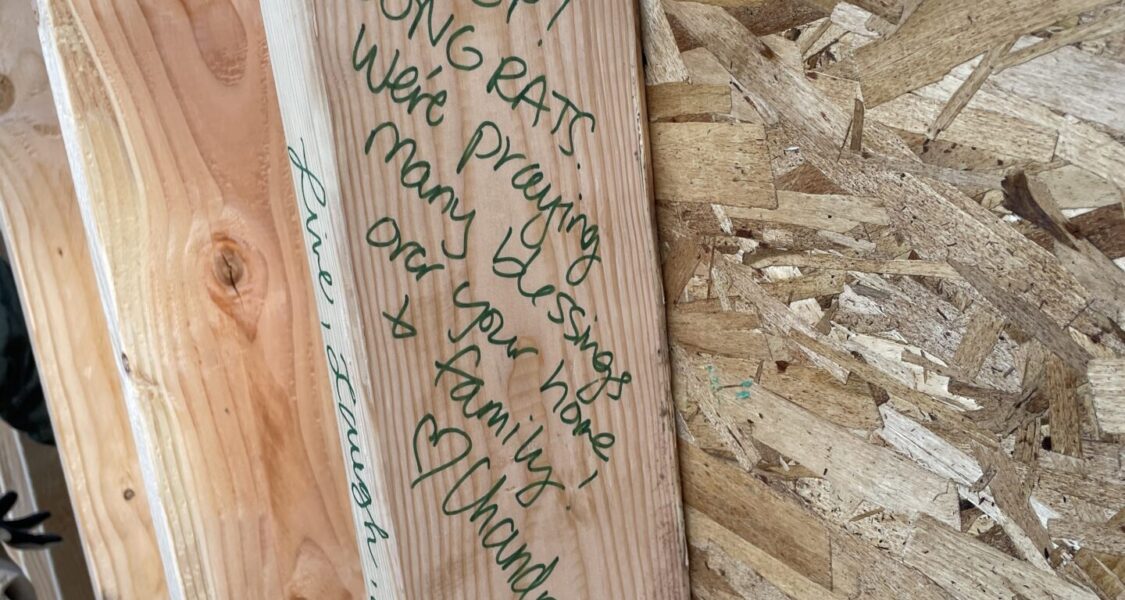 CONGRATS.
We're praying
many blessings
over your home,
+ family.
♡ Chand
Live, Laugh,